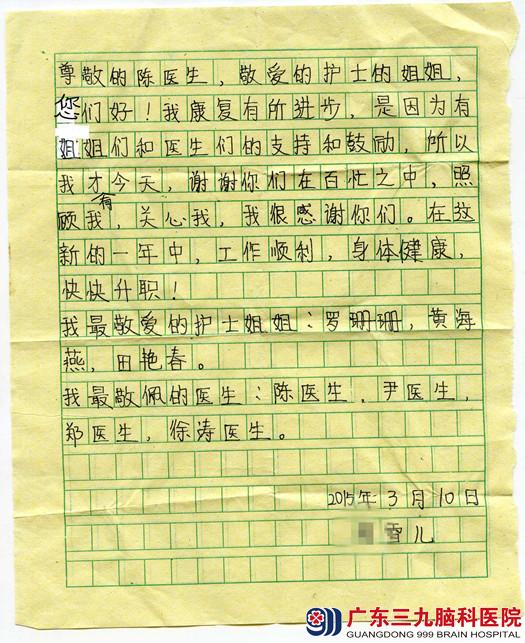 尊敬的陈医生，敬爱的护士的姐姐，
您们好！我康复有所进步，是因为有
姐姐们和医生们的支持和鼓励，所以
我才有今天，谢谢你们在百忙之中，照
顾我，关心我，我很感谢你们。在这
新的一年中，工作顺利，身体健康，
快快升职！
我最敬爱的护士姐姐：罗珊珊，黄海
燕，田艳春。
我最敬佩的医生：陈医生，尹医生，
郑医生，徐涛医生。
2015年3月10日
雪儿
广东三九脑科医院
GUANGDONG 999 BRAIN HOSPITAL